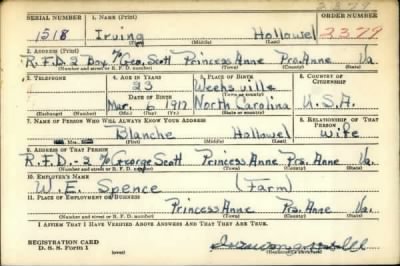 2379
SERIAL NUMBER 1. NAME (Print) ORDER NUMBER
1518 Irving Hollowel 2379
(First) (Middle) (Last)
2. ADDRESS (Print)
R.F.D. 2 Box % Geo. Scott Princess Anne Prs. Anne Va.
(Number and street or R. F. D. number) (Town) (County) (State)
3. TELEPHONE 4. AGE IN YEARS 5. PLACE OF BIRTH 6. COUNTRY OF CITIZENSHIP
23 Weeksville
DATE OF BIRTH (Town or county)
Mar. 6 1917 North Carolina U.S.A.
(Exchange) (Number) (Mo.) (Day) (Yr.) (State or country)
7. NAME OF PERSON WHO WILL ALWAYS KNOW YOUR ADDRESS 8. RELATIONSHIP OF THAT PERSON
Blanche Hollowel Wife
(First) (Middle) (Last)
9. ADDRESS OF THAT PERSON
R.F.D.-2 % George Scott Princess Anne Prs. Anne Va.
(Number and street or R. F. D. number) (Town) (County) (State)
10. EMPLOYER'S NAME
W. E. Spence (Farm)
11. PLACE OF EMPLOYMENT OR BUSINESS
Princess Anne Prs. Anne Va.
(Number and street or R. F. D. number) (Town) (County) (State)
I AFFIRM THAT I HAVE VERIFIED ABOVE ANSWERS AND THAT THEY ARE TRUE.
REGISTRATION CARD
D. S. S. Form 1 (over) (Registrant's signature)